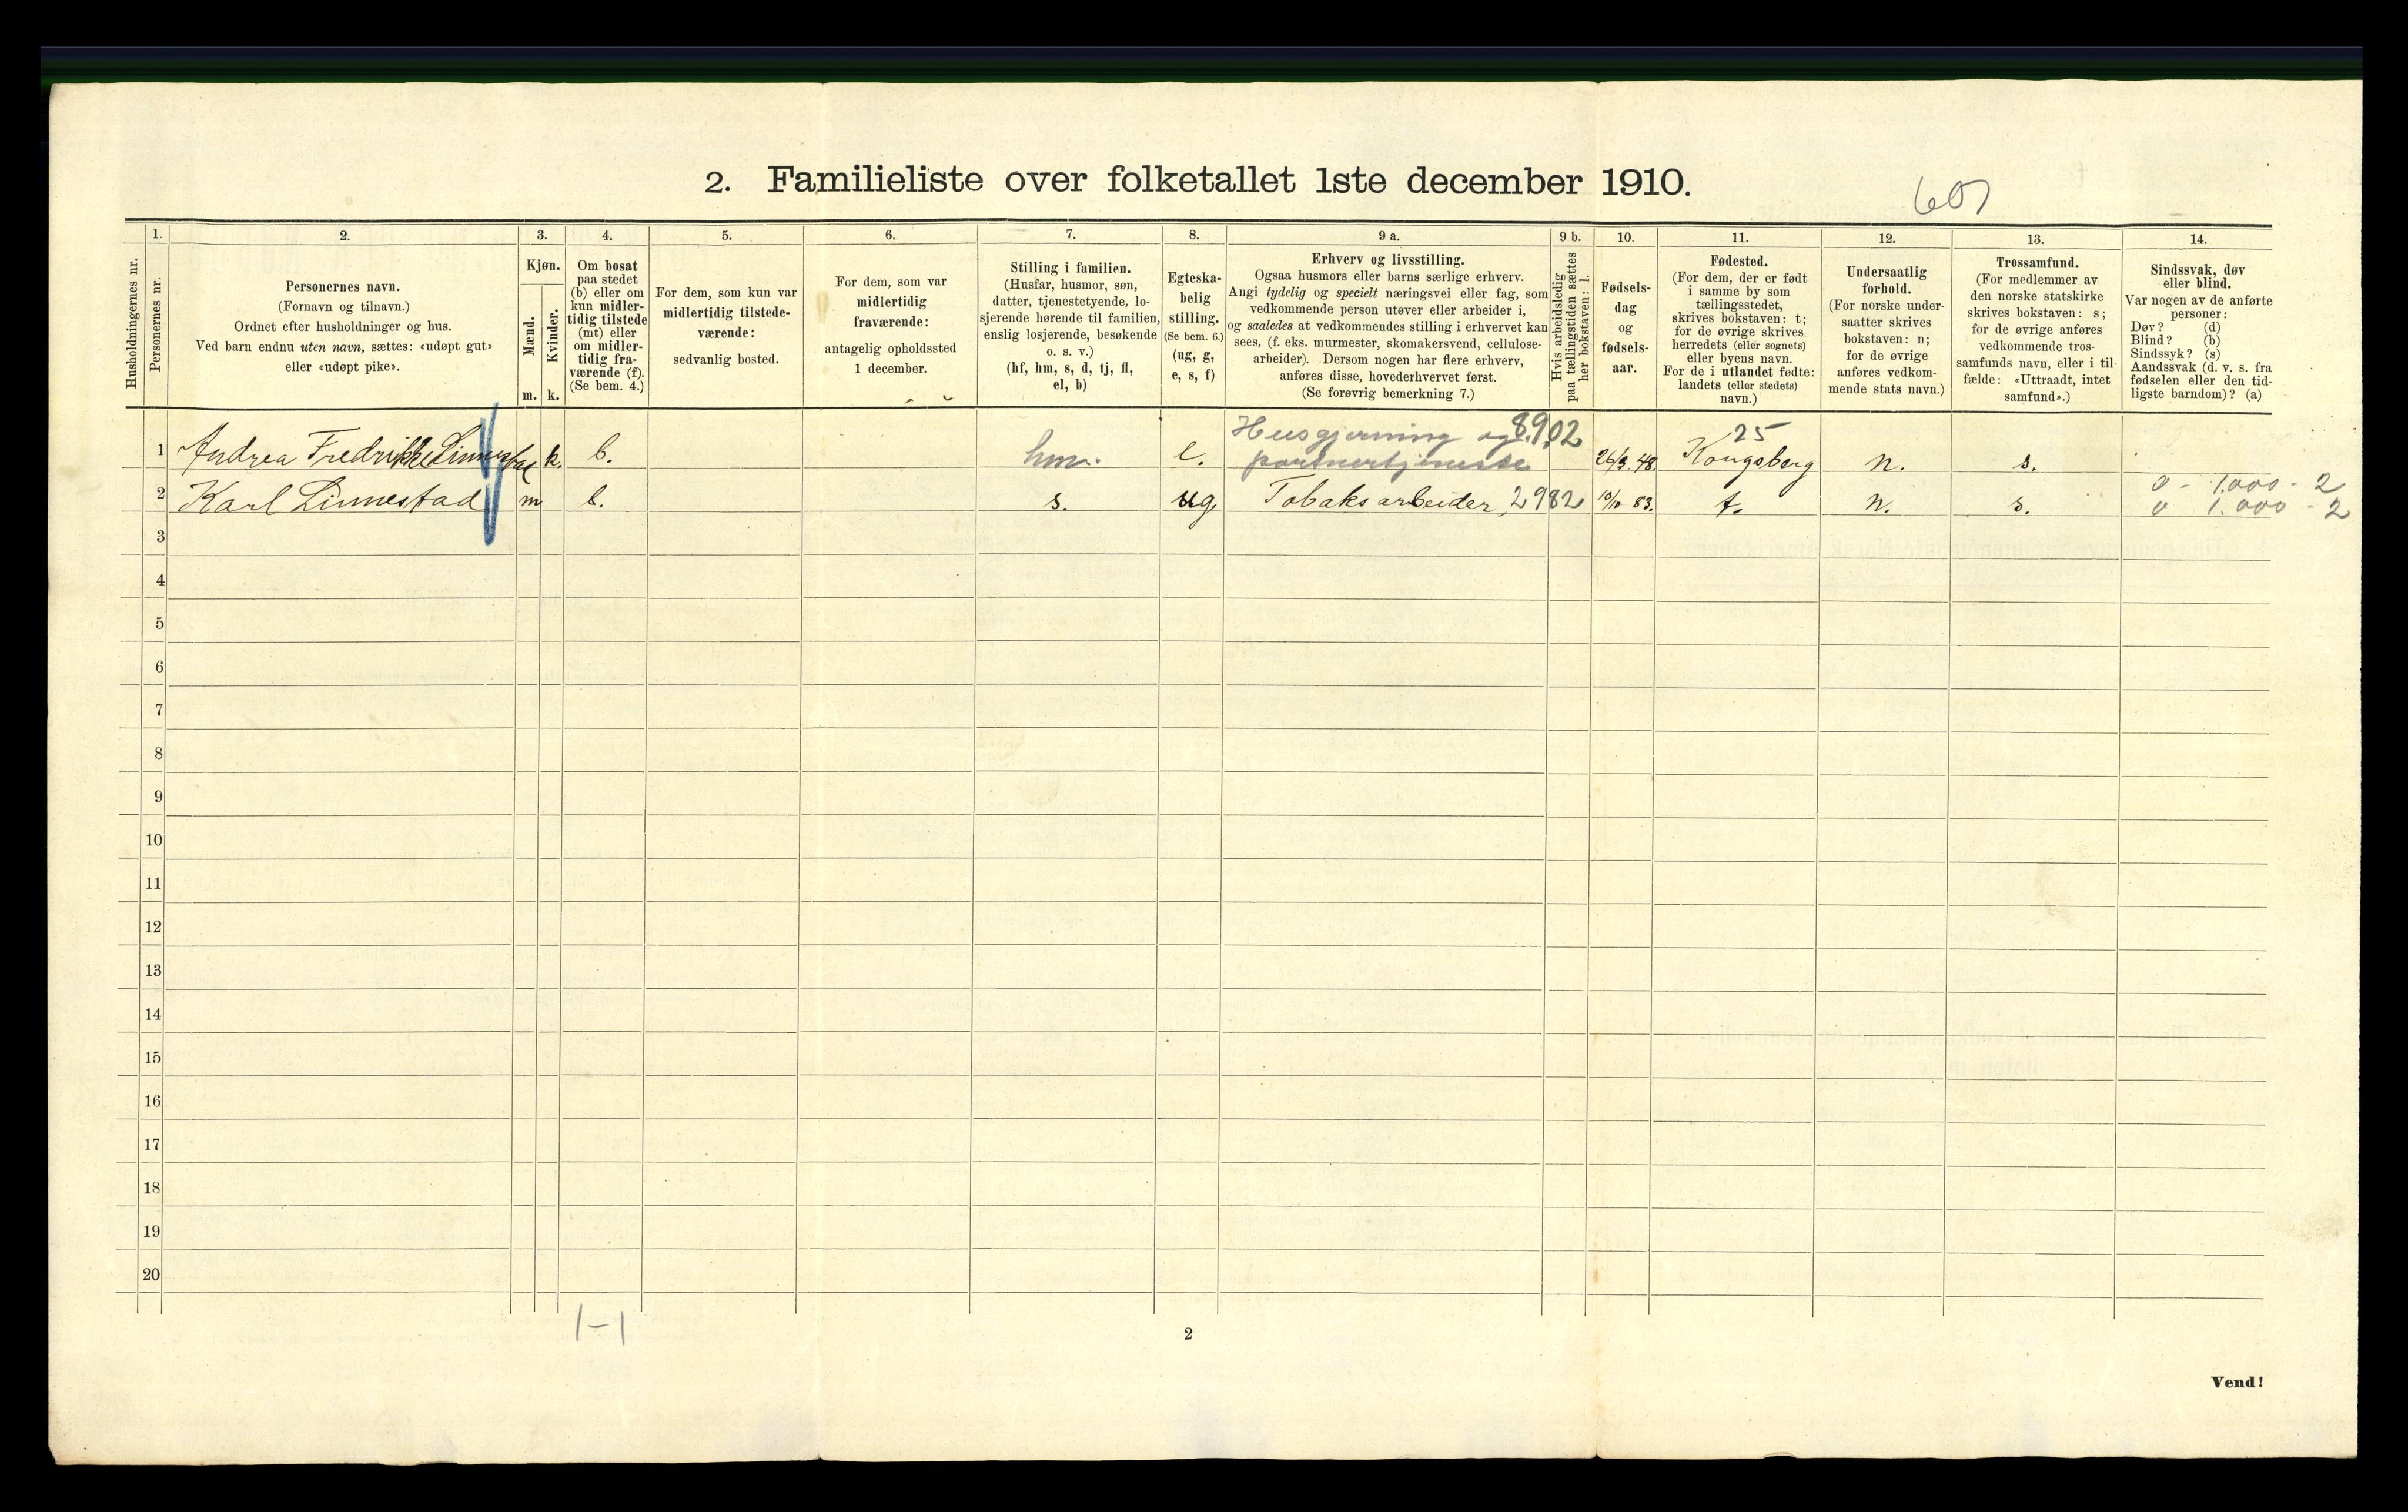 2. Familieliste over folketallet 1ste december 1910.
Husholdningernes nr.
1.
Personernes nr.
2.
Personernes navn.
(Fornavn og tilnavn.)
Ordnet efter husholdninger og hus.
Ved barn endnu uten navn, sættes: «udøpt gut»
eller «udøpt pike».
3.
Kjøn.
Mænd.
Kvinder.
m. k.
4.
Om bosat
paa stedet
(b) eller om
kun midler-
tidig tilstede
(mt) eller
om midler-
tidig fra-
værende (f).
(Se bem. 4.)
5.
For dem, som kun var
midlertidig tilstede-
værende:
sedvanlig bosted.
6.
For dem, som var
midlertidig
fraværende:
antagelig opholdssted
1 december.
7.
Stilling i familien.
(Husfar, husmor, søn,
datter, tjenestetyende, lo-
sjerende hørende til familien,
enslig losjerende, besøkende
o. s. v.)
(hf, hm, s, d, tj, fl,
el, b)
8.
Egteska-
belig
stilling.
(Se bem. 6.)
(ug, g,
e, s, f)
9 a.
Erhverv og livsstilling.
Ogsaa husmors eller barns særlige erhverv.
Angi tydelig og specielt næringsvei eller fag, som
vedkommende person utøver eller arbeider i,
og saaledes at vedkommendes stilling i erhvervet kan
sees, (f. eks. murmester, skomakersvend, cellulose-
arbeider). Dersom nogen har flere erhverv,
anføres disse, hovederhvervet først.
(Se forøvrig bemerkning 7.)
9 b.
Hvis arbeidsledig
paa tællingstiden sættes
her bokstaven: l.
10.
Fødsels-
dag
og
fødsels-
aar.
11.
Fødested.
(For dem, der er født
i samme by som
tællingsstedet,
skrives bokstaven: t;
for de øvrige skrives
herredets (eller sognets)
eller byens navn.
For de i utlandet fødte:
landets (eller stedets)
navn.)
12.
Undersaatlig
forhold.
(For norske under-
saatter skrives
bokstaven: n;
for de øvrige
anføres vedkom-
mende stats navn.)
13.
Trossamfund.
(For medlemmer av
den norske statskirke
skrives bokstaven: s;
for de øvrige anføres
vedkommende tros-
samfunds navn, eller i til-
fælde: «Uttraadt, intet
samfund».)
14.
Sindssvak, døv
eller blind.
Var nogen av de anførte
personer:
Døv? (d)
Blind? (b)
Sindssyk? (s)
Aandssvak (d. v. s. fra
fødselen eller den tid-
ligste barndom)? (a)
Husgjerning og 8902 25
1 Andrea Fredrikke Linnestad k. b. hm. e. portnertjeneste 26/3. 48. Kongsberg n. s.
0 - 1.000 - 2
2 Karl Linnestad m b. s. ug. Tobaksarbeider 2982 10/10 83. t. n. s. 0 1.000 - 2
3
4
5
6
7
8
9
10
11
12
13
14
15
16
17
18
19
20
1-1
2
Vend!